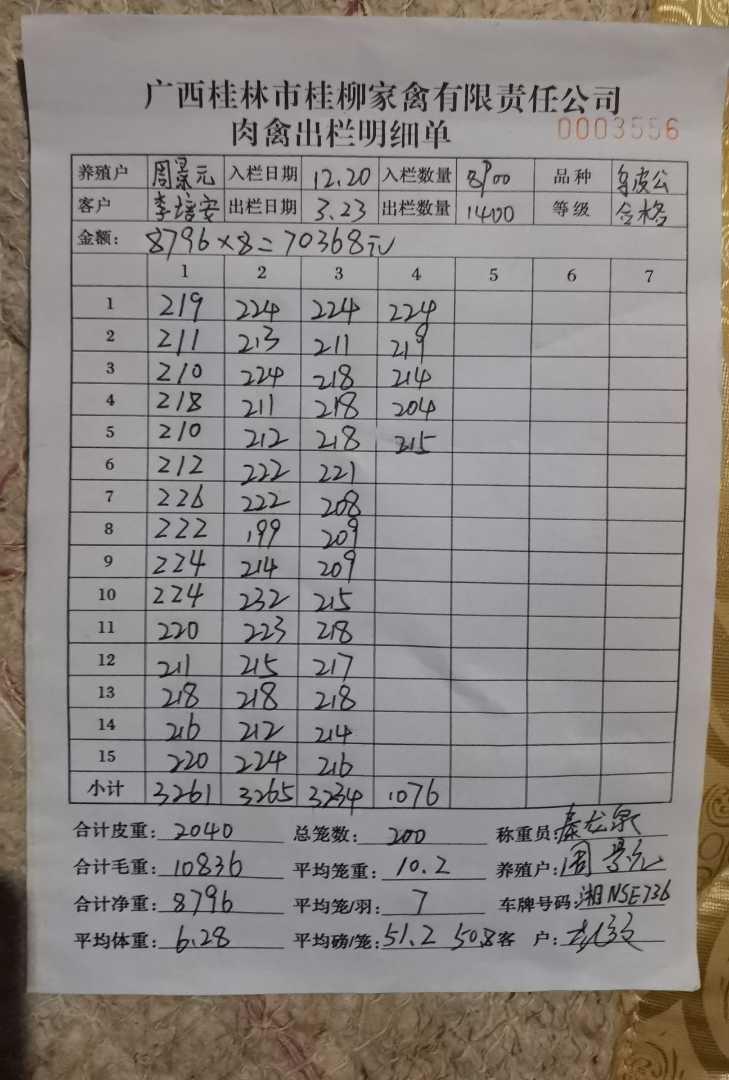 广西桂林市桂柳家禽有限责任公司
肉禽出栏明细单 0003556
养殖户 周景元 入栏日期 12.20 入栏数量 8900 品种 乌皮公
客户 李培安 出栏日期 3.23 出栏数量 1400 等级 合格
金额: 8796×8=70368元
1 2 3 4 5 6 7
1 219 224 224 224
2 211 213 211 219
3 210 224 218 214
4 218 211 218 204
5 210 212 218 215
6 212 222 221
7 226 222 208
8 222 199 209
9 224 214 209
10 224 232 215
11 220 223 218
12 211 215 217
13 218 218 218
14 216 212 214
15 220 224 216
小计 3261 3265 3234 1076
合计皮重: 2040 总笼数: 200 称重员: 秦龙泉
合计毛重: 10836 平均笼重: 10.2 养殖户: 周景元
合计净重: 8796 平均笼/羽: 7 车牌号码: 湘NSE736
平均体重: 6.28 平均磅/笼: 51.2 50.8 客 户: